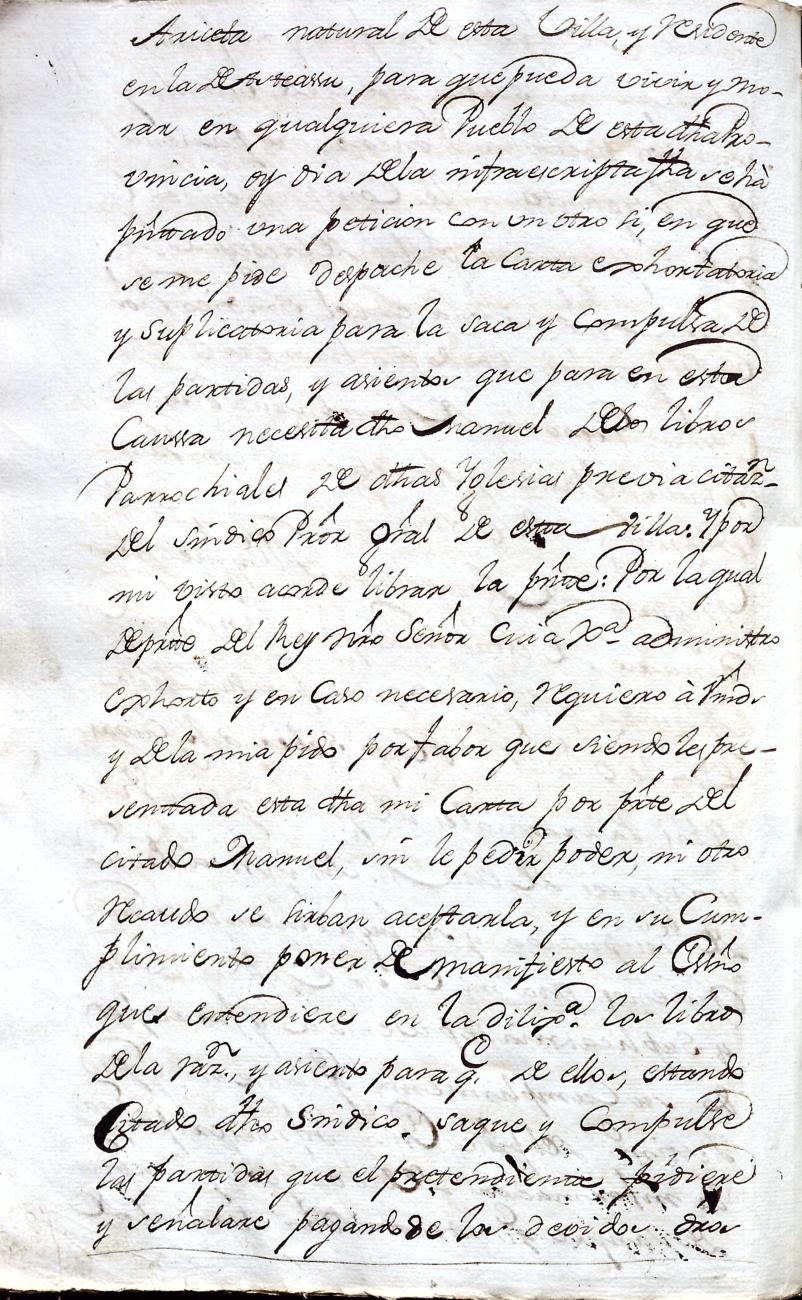 Ariceta natural de esta Villa, y residente
en la de Asteassu, para que pueda vivir y mo-
rar en qualquiera Pueblo de esta dha Pro-
vincia, oy dia de la infraescripta fha se hà
pñtado una peticion con un otro si, en que
se me pide despache la Carta exhortatoria
y suplicatoria para la saca y Compulsa de
las partidas, y asientos que para en esta
Caussa necesita dho Manuel de los libros
Parrochiales de dhas Yglesias previa citazn
del sindico Pror Gral de esta Villa: Y por
mi visto acorde librar la pñte: Por la qual
de prte del Rey nro Señor Cuia Xa administro
exhorto y en Caso necesario, requiero à Vmds
y de la mia pido por fabor que siendoles pre-
sentada esta dha mi Carta por prte del
citado Manuel, sin le pedir poder, ni otro
recaudo se sirban aceptarla, y en su Cum-
plimiento poner de manifiesto al Essno
que entendiere en la dilixa los libros
de la razn, y asiento para q.e de ellos, estando
Citado dho Sindico, saque y Compulse
las partidas que el pretendiente pidiere
y señalare pagandole los devidos dros